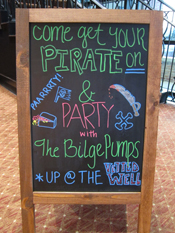 come get YOUR
PIRATE on
PAARRRTY!
&
PARTY
with
The BilgePumps
*UP @ THE WITTED
WELL